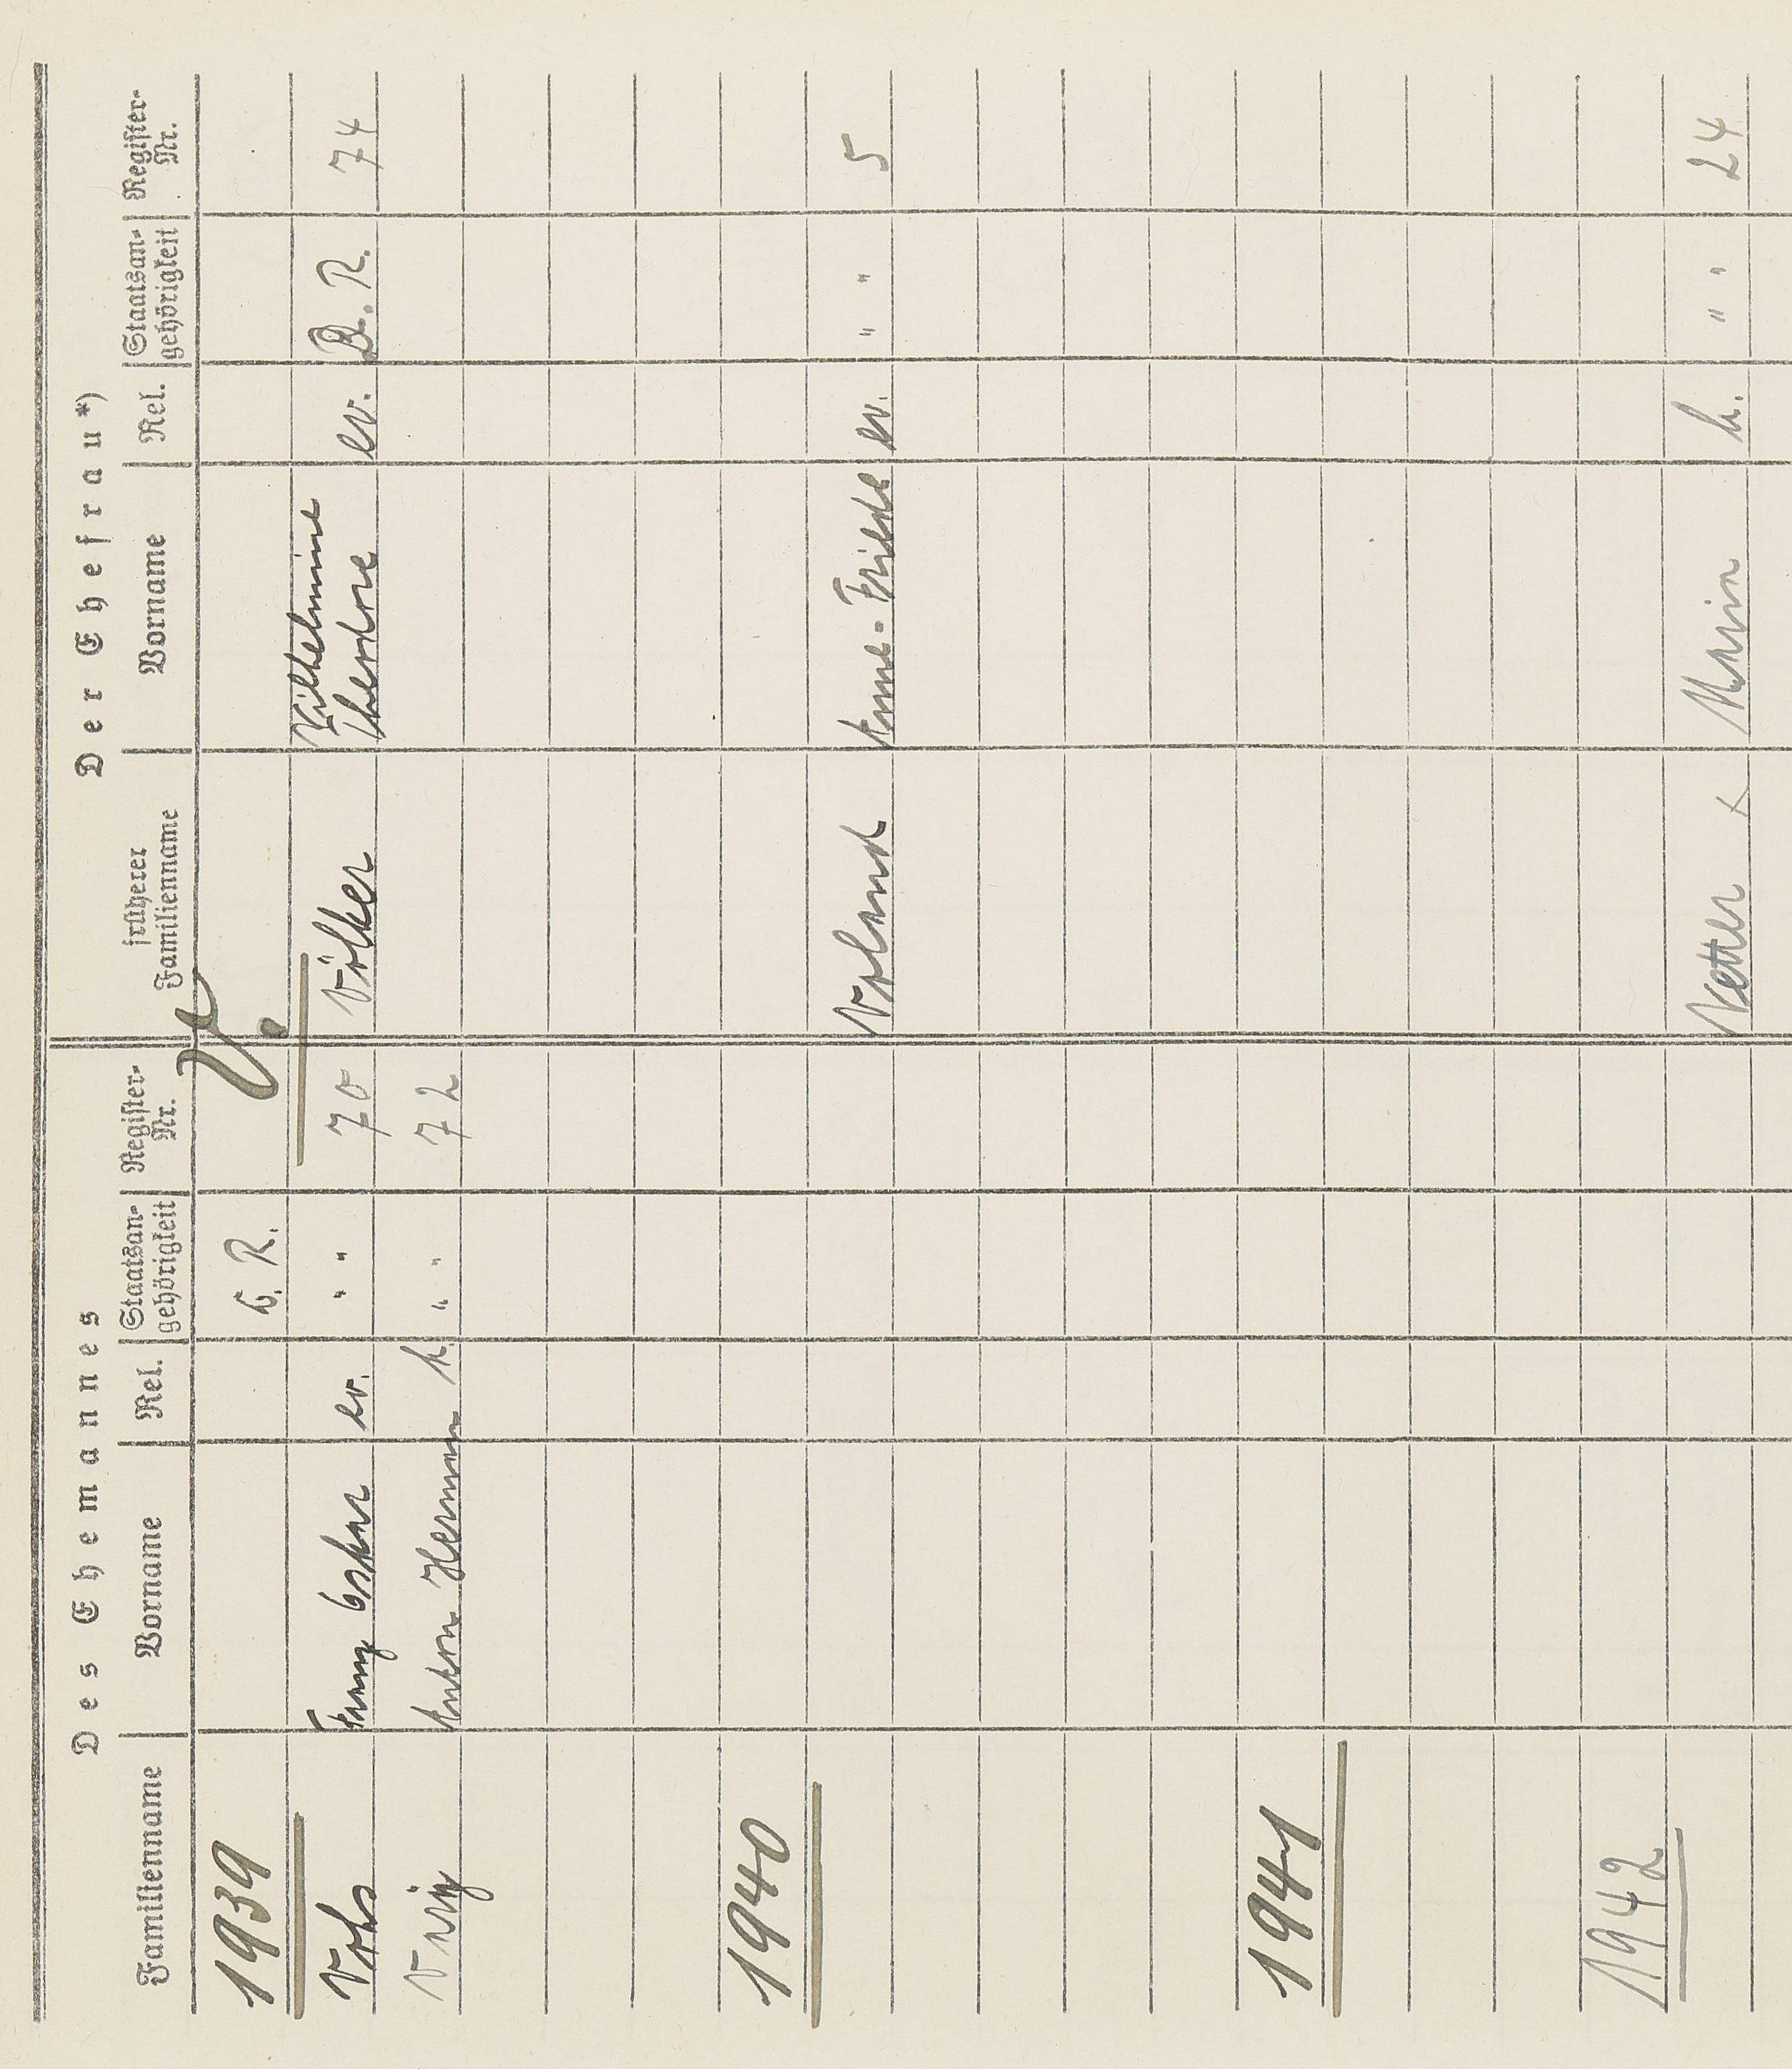 Des Ehemannes Der Ehefrau*)
Familienname Vorname Rel. Staatsan-gehörigkeit Register-Nr. früherer Familienname Vorname Rel. Staatsan-gehörigkeit Register-Nr.
1939 D. R. V.
Vohs Franz Oskar ev. " " 70 Völker Wilhelmine Theodore ev. D. R. 74
Anton Hermann k. " " 72
1940
Voland Anne-Friede ev. " " 5
1941
1942
Vetter Maria k. " " 24